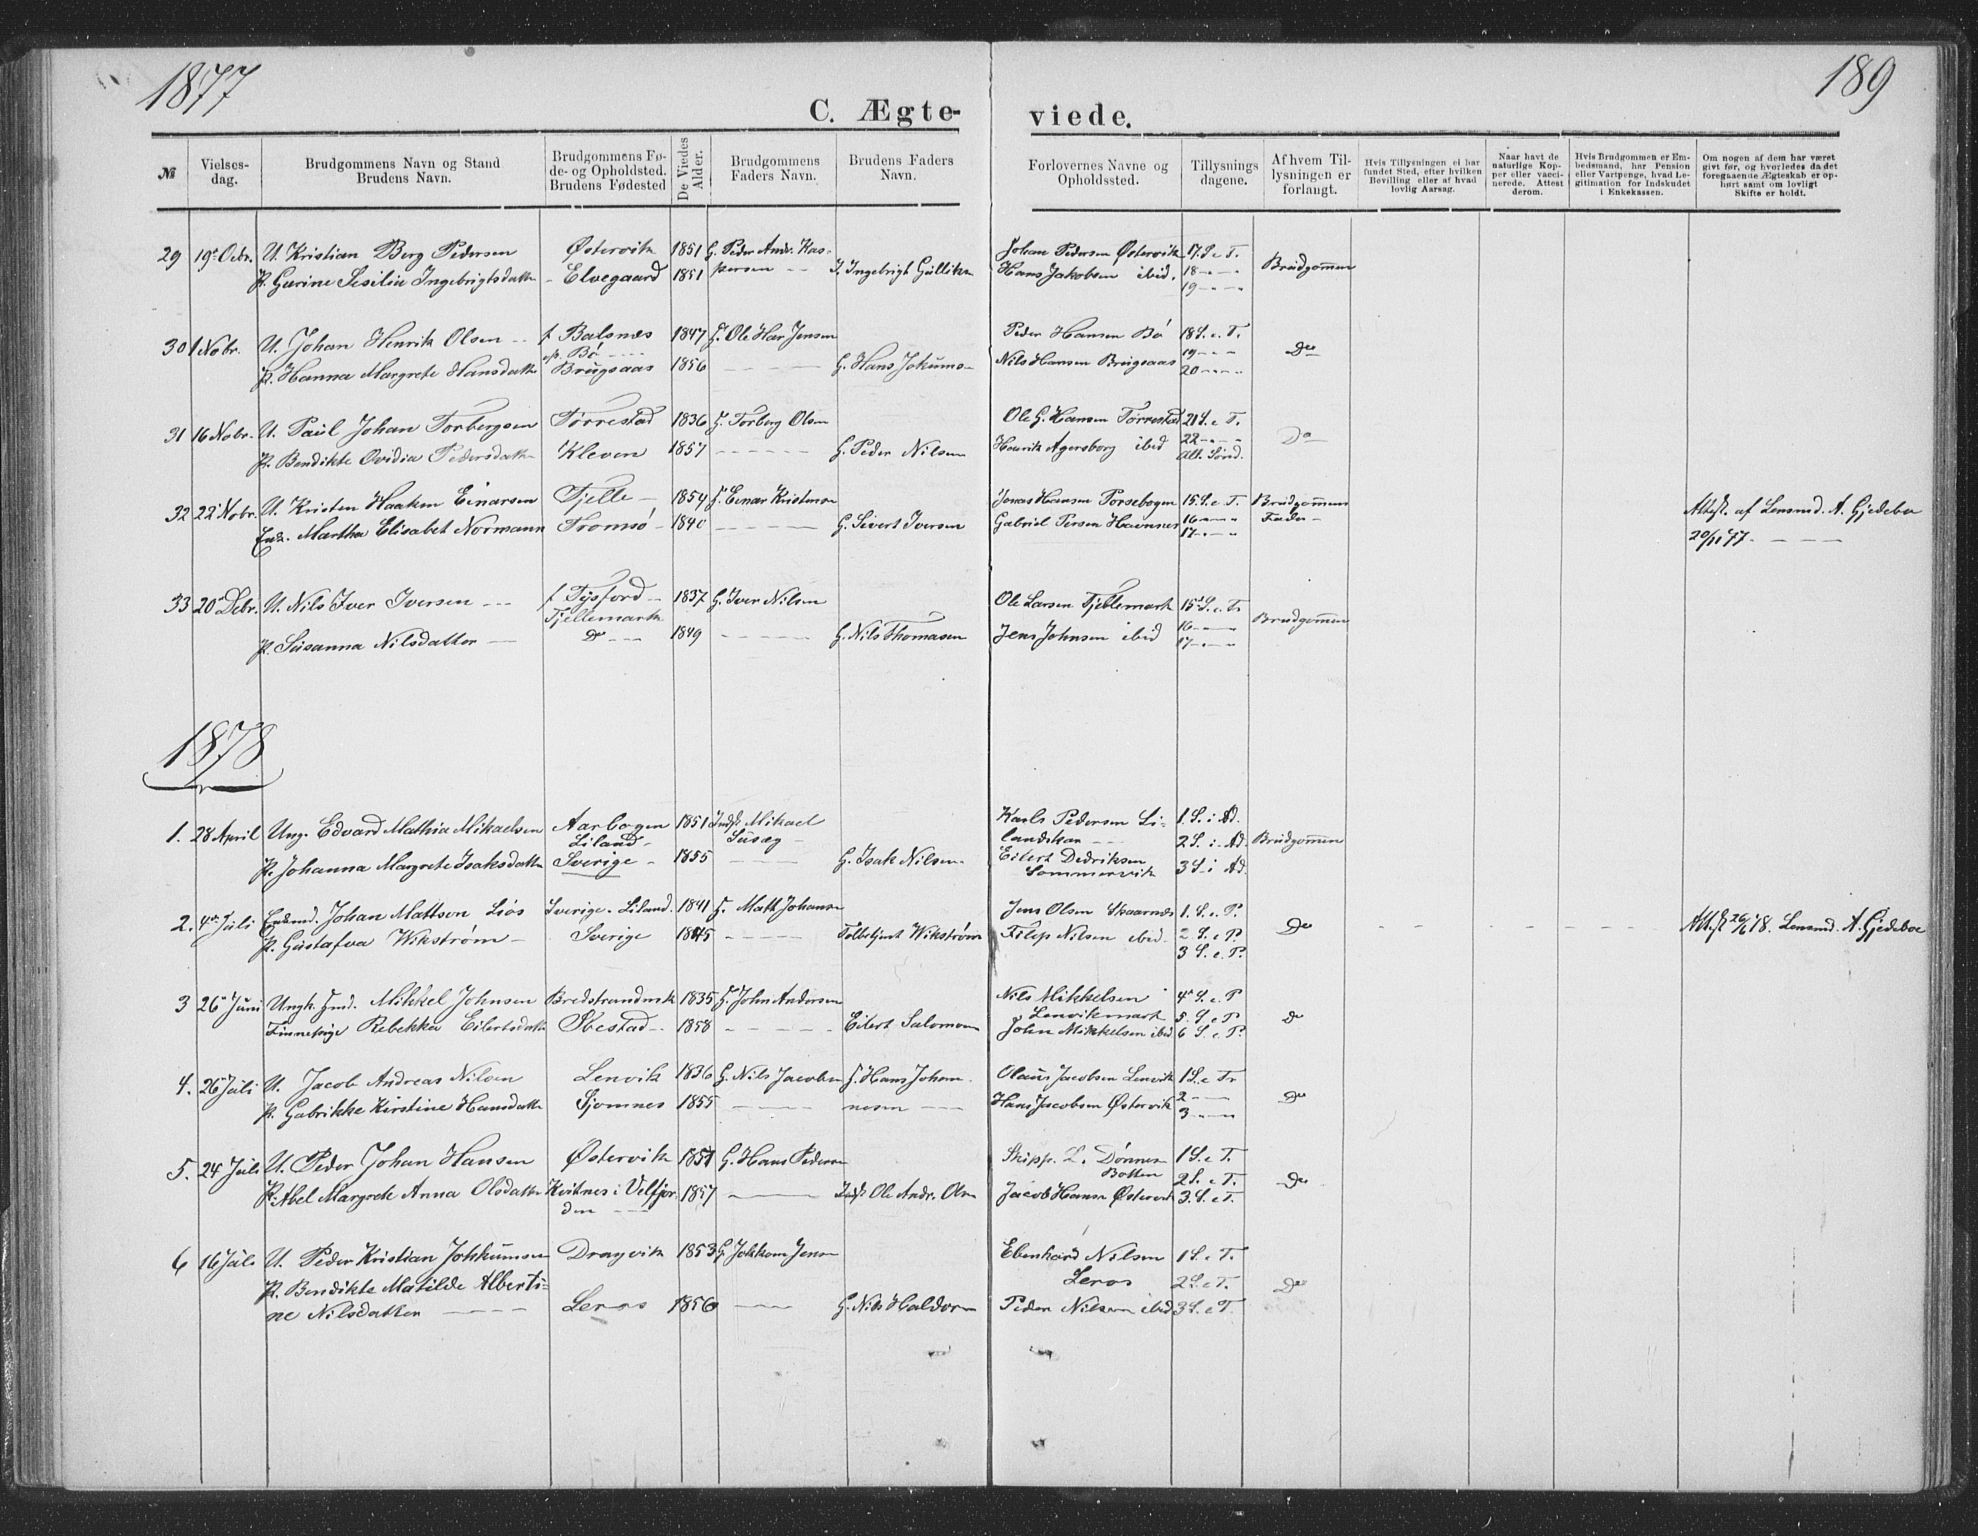 1877
189
C. Ægte-
viede.
№
Vielses-
dag.
Brudgommens Navn og Stand
Brudens Navn.
Brudgommens Fø-
de- og Opholdsted.
Brudens Fødested
De Viedes
Alder.
Brudgommens
Faders Navn.
Brudens Faders
Navn.
Forlovernes Navne og
Opholdssted.
Tillysnings
dagene.
Af hvem Til-
lysningen er
forlangt.
Hvis Tillysningen ei har
fundet Sted, efter hvilken
Bevilling eller af hvad
lovlig Aarsag.
Naar havt de
naturlige Kop-
per eller vacci-
nerede. Attest
derom.
Hvis Brudgommen er Em-
bedsmand, har Pension
eller Vartpenge, hvad Le-
gitimation for Indskudet
i Enkekassen.
Om nogen af dem har været
givt før, og hvorledes da det
foregaaende Ægteskab er op-
hørt samt om lovligt
Skifte er holdt.
29 19de Octbr. U. Kristian Berg Pedersen Østervik 1851 G. Peder Andr. Kas- Johan Pedersen Østervik 17 S. e T.
P. Gurine Sesilie Ingebrigtsdatter - Elvegaard 1851 persen - - Ingebrigt Hans Jakobsen ibid. 18 - - - Brudgommen
19 - - -
30 1 Nobr. U. Johan Henrik Olsen - - f Balsnæs 1847 G. Ole Har Jensen Peder Hansen Bø 18 S. e. T.
op. Bø - - - - 19 - - - Do
P. Hanna Margrete Hansdatter Brugsaas 1856 - - - - - G. Hans Jokums- Nils Hansen Brugsaas 20 - - -
31 16 Nobr. U. Paul Johan Torbergsen Tørrestad 1836 G. Torberg Olsen Ole G. Hansen Tørrestad 21 S. e T.
P. Bendikte Ovidia Pedersdatter Kleven 1857 - - - - - - G. Peder Nilsen Henrik Agersborg ibid 22 - - - Do
All. Sønd.
32 22 Nobr. U. Kristen Haaken Einarsen Fjelle - 1854 G. Einar Kristensen Jonas Hansen 15 S. e. T. Brudgommens
Enk. Martha Elisabet Normann Tromsø - 1840 - - - - - G. Sivert Iversen Gabriel Persen Havnnes 16 - - - Fader - Attest. af Lensmd. A. Gjedebo
17 - - - 20/11 77. - - - -
33 20 Debr. U. Nils Iver Iversen - - - f Tysford - 1837 G. Iver Nilsen Ole Larsen Fjellemark 15 S. e. Tr
Fjellemark 16 - - - Brudgommen
P. Susanna Nilsdatter - - do - - - 1849 - - - - - G. Nils Thomasen Jens Johnsen ibid 17 - - -
1878
1. 28 April Ung. Edvard Mathia Mikaelsen Aarbogen 1851 Indst Mikael Karls Pedersen Li- 1. S. i Ad.
Liland - landskar - - - 2 S. i. Ad. Brudgommen
P. Johanna Margrete Isaksdatter Sverige - 1855 - - - - G. Isak Nilsen - Eilert Dedriksen
Sommervik 3 S. i Ad.
2. 4de Juli Enkmd. Johan Mattson Liøs Sverige. Liland. 1841 G. Math Johanse Jens Olsen Skaarnæs 1. S. e. P.
P. Gustafva Wikstrøm - Sverige 1845 - - - - Wikstrøm Filip Nilsen ibid - 2 S. e P. Do Attest 26/6 78. Lensmd. A. Gjedeboe
3 S. e. P.
3 26 Juni Ungk. Gmd. Mikkel Johnsen Bredstrandmk 1835 G. John Andersen Nils Mikkelsen 4 S. e. P
Finnepige Rebekka Eilertsdatter Ibestad - 1858 - - - - - Eilert Salomonsen Lenvikmark 5. S. e P do
John Mikkelsen ibid 6 S. e. P.
4. 26 Juli U. Jacob Andreas Nilsen Lenvik 1836 G. Nils Jacobsen G. Hans Johan- Olaus Jacobsen Lenvik 1 S. e Tr
P. Gabrikke Kirstine Hansdatter Sjomnes 1855 - - - - nesen - - Hans Jacobsen Østervik 2 - - - Do
3 - - -
5. 24 Juli U. Peder Johan Hansen Østervik 1851 G. Hans Pedersen Skipp. L. Dønnes- 1 S. e T.
Botten 2 S. e T. Do
P. Abel Margrete Anna Olsdatter Kvitnes i Velfjor- 1857 - - - - Indst Ole Andr. Olsen Jacob Hansen Østervik 3. S. e T.
den - - -
6 16 Juli U. Peder Kristian Johkumsen Dragvik 1853 G. Jokkom Jensen Ebenhard Nilsen 1 S. e T.
P. Bendikte Matilde Alberti- Leros 2 S. e T. Do
ne Nilsdatter - - - - Leros 1856 - - - G. Nils Haldorsen Peder Nilsen ibid 3 S. e T.